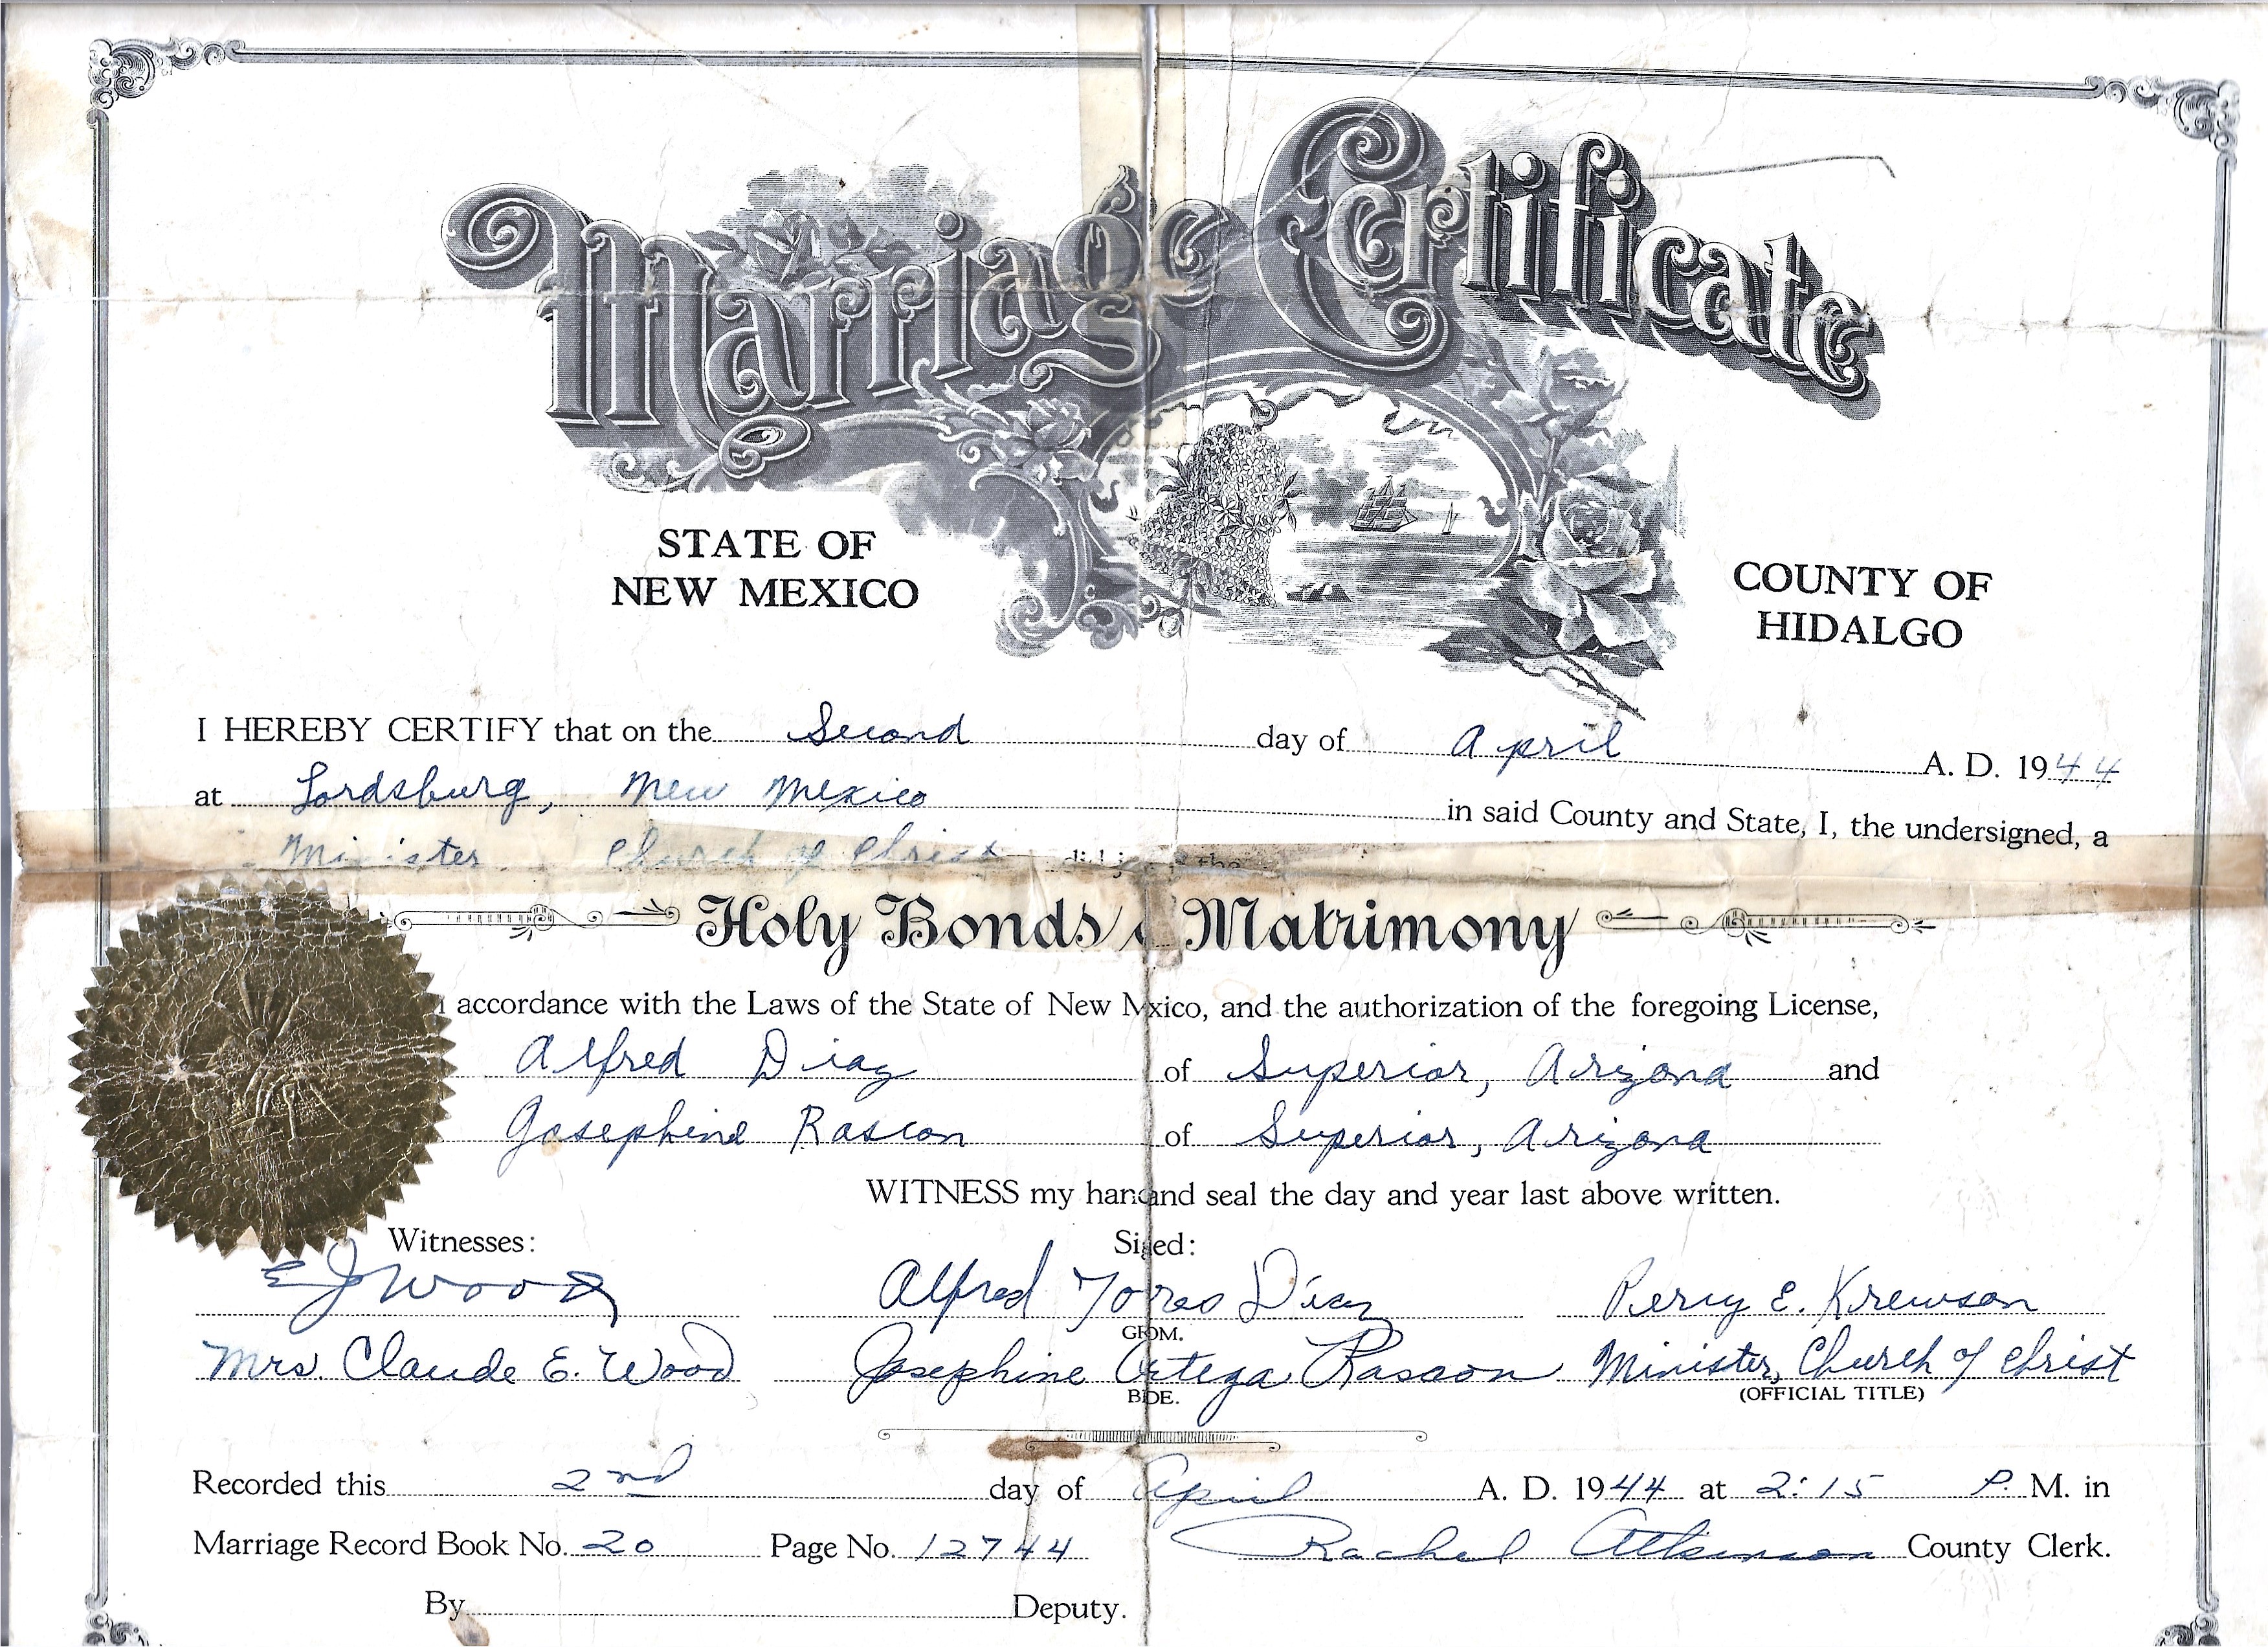 Marriage Certificate
STATE OF
NEW MEXICO
COUNTY OF
HIDALGO
I HEREBY CERTIFY that on the Second day of April A. D. 1944
at Lordsburg, New Mexico in said County and State, I, the undersigned, a
Minister Church of Christ the
Holy Bonds Matrimony
accordance with the Laws of the State of New Mxico, and the authorization of the foregoing License,
Alfred Diaz of Superior, Arizona and
Josephine Rascon of Superior, Arizona
WITNESS my han and seal the day and year last above written.
Witnesses: Siged:
E J Wood Alfred Diaz Percy E. Krewson
GROM.
Mrs. Claude E. Wood Josephine Ortega Rascon Minister, Church of Christ
BIDE. (OFFICIAL TITLE)
Recorded this 2nd day of April A. D. 1944 at 2:15 P. M. in
Marriage Record Book No. 20 Page No. 12744 Rachel Atkinson County Clerk.
By Deputy.